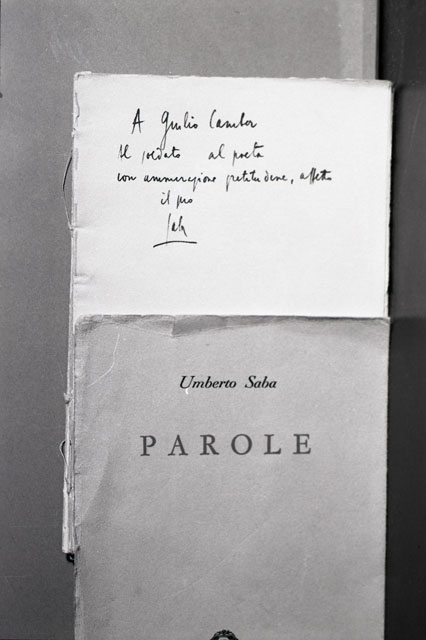 A Giulio Camber
al soldato al poeta
con ammirazione gratitudine, affetto
il suo
Saba
Umberto Saba
PAROLE